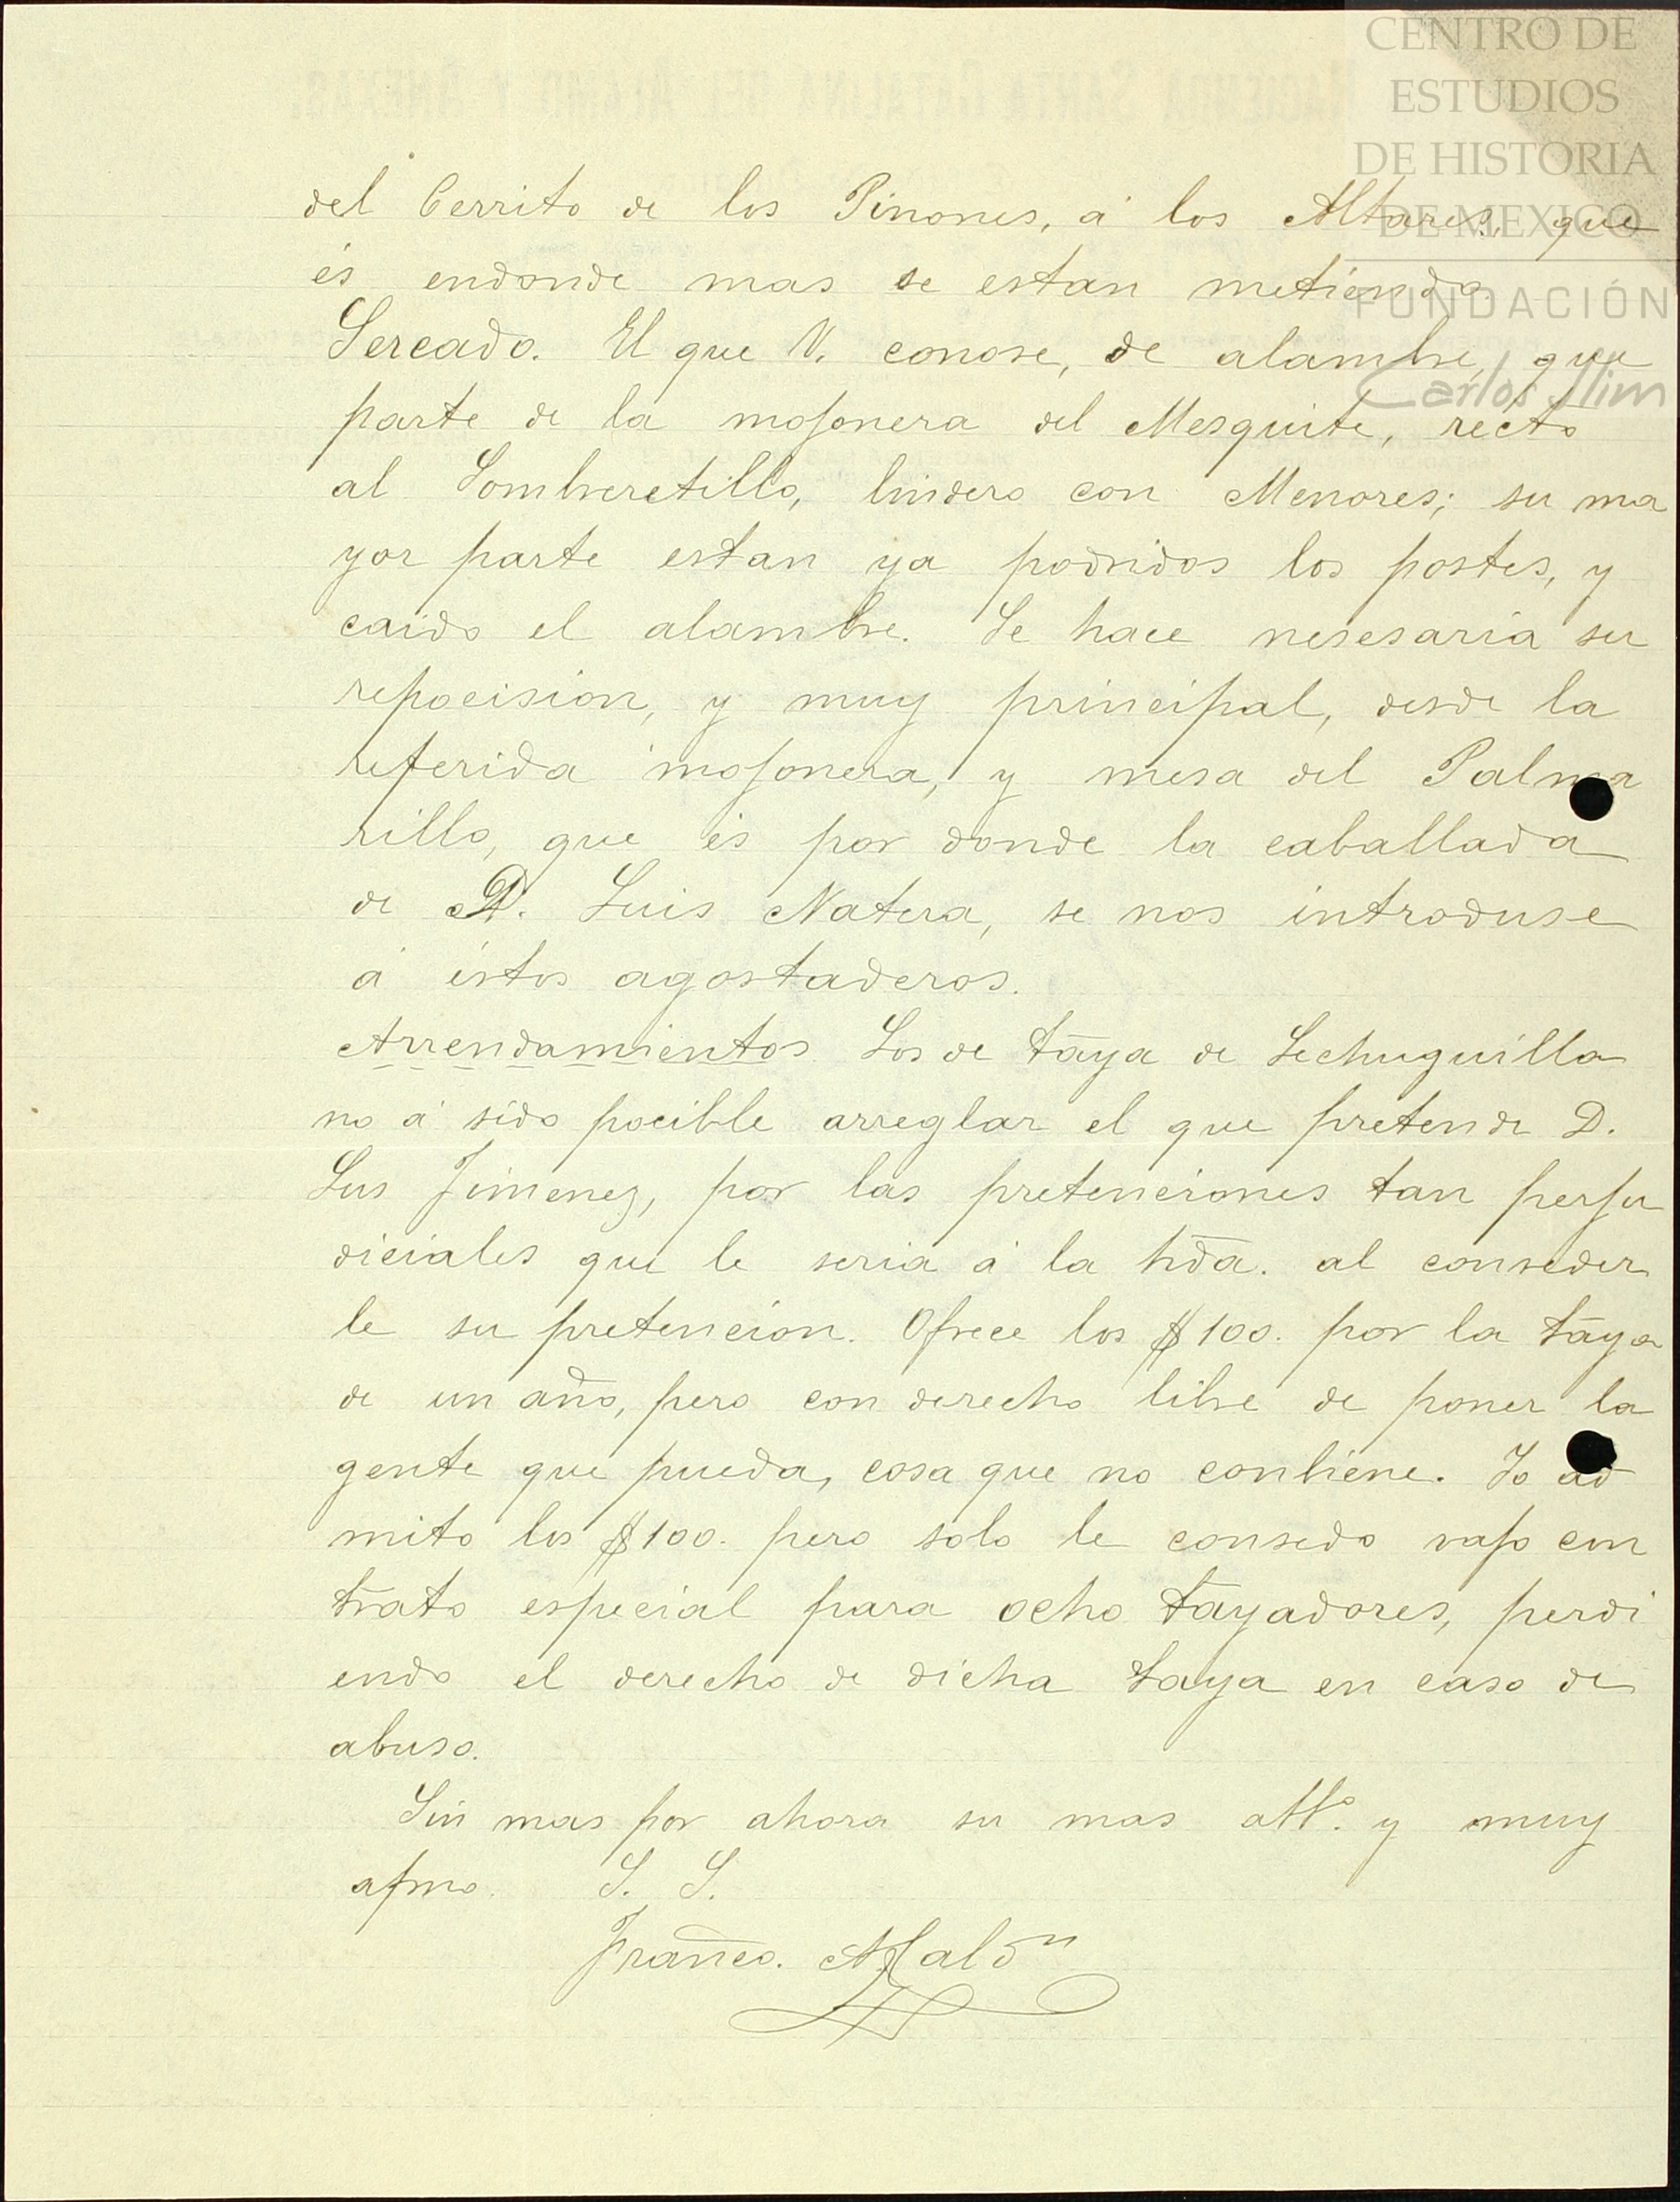 CENTRO DE
ESTUDIOS
DE HISTORIA
DE MEXICO
FUNDACIÓN
Carlos Slim
del Cerrito de los Pinones, á los Altares, que
és endonde mas se estan metiendo.
Sercado. El que V. conose, de alambre, que
parte de la mojonera del Mesquite, recto
al Sombreretillo, lindero con Menores; su ma
yor parte estan ya podridos los postes, y
caido el alambre. Se hace nesesaria su
repocision, y muy principal, desde la
referida mojonera, y mesa del Palma
rillo, que és por donde la caballada
de D. Luis Natera, se nos introduse
á éstos agostaderos.
Arrendamientos. Los de taya de Lechuguilla
no á sido pocible arreglar el que pretende D.
Lus Jimenez, por las pretenciones tan perju
diciales que le seria á la hda. al conseder
le su pretencion. Ofrece los $100. por la taya
de un año, pero con derecho libre de poner la
gente que pueda, cosa que no conbiene. Yo ad
mito los $100. pero solo le consedo vajo con
trato especial para ocho tayadores, perdi
endo el derecho de dicha taya en caso de
abuso.
Sin mas por ahora su mas atto. y muy
afmo. S. S.
Franco. Maldn